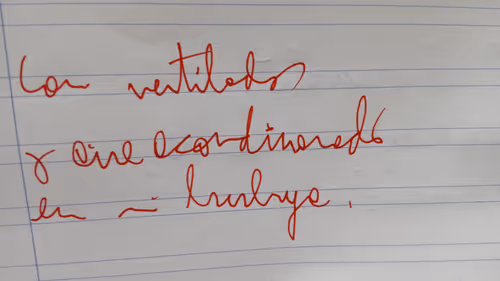 Con ventilador
y aire acondicionado
en mi